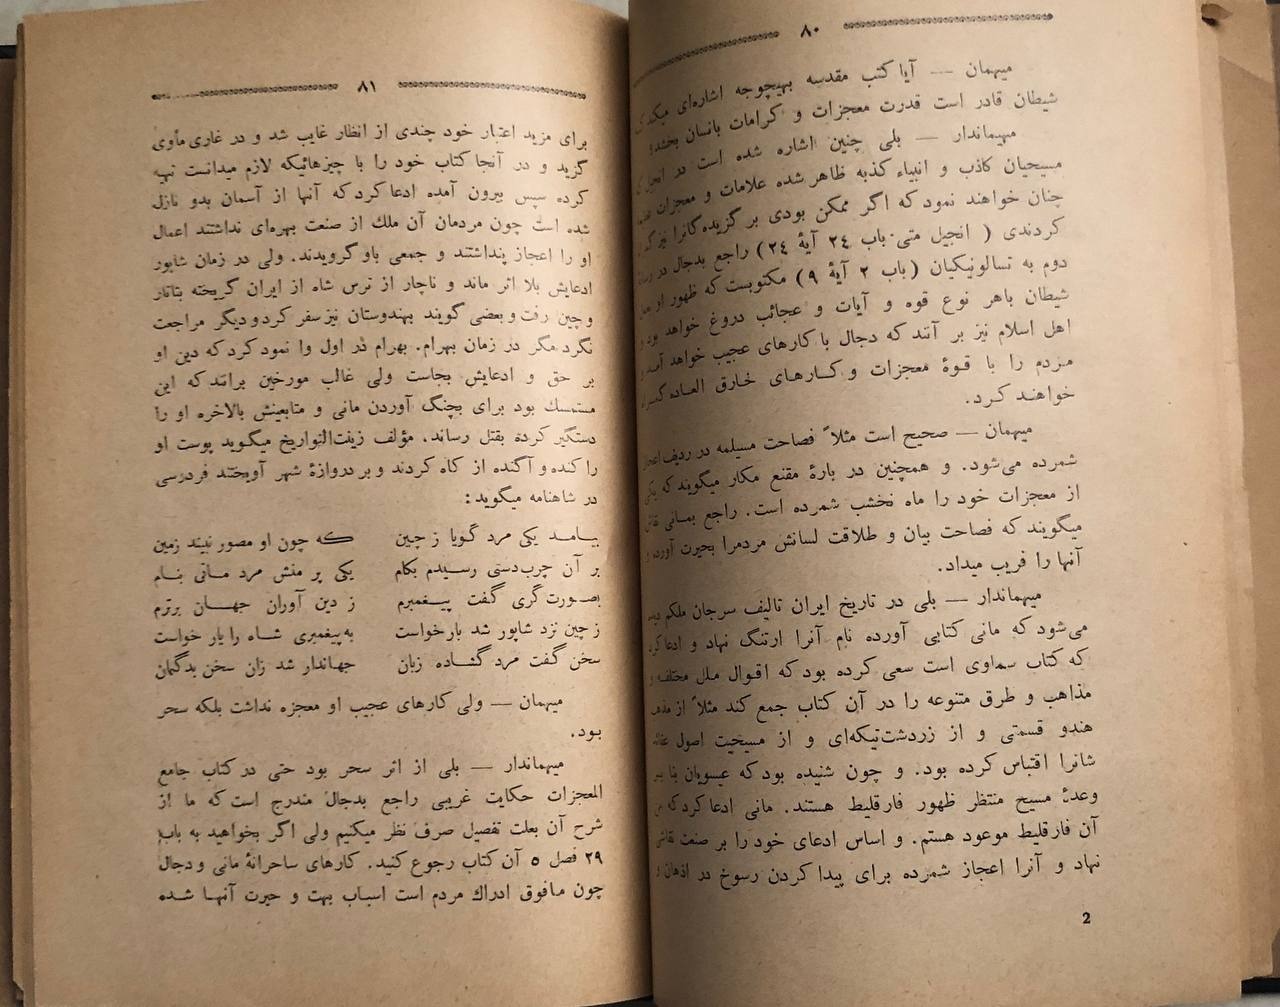 ۸۰
میهمان — آیا کتب مقدسه بهیچوجه اشاره‌ای میکند که
شیطان قادر است قدرت معجزات و کرامات بانسان بخشد؟
میهماندار — بلی چنین اشاره شده است در انجیل که
مسیحیان کاذب و انبیاء کذبه ظاهر شده علامات و معجزات
چنان خواهند نمود که اگر ممکن بودی برگزیده‌گانرا نیز
کردندی ( انجیل متی باب ۲۴ آیهٔ ۲۴) راجع بدجال در
دوم به تسالونیکیان (باب ۲ آیهٔ ۹) مکتوبست که ظهور او
شیطان باهر نوع قوه و آیات و عجائب دروغ خواهد بود
اهل اسلام نیز بر آنند که دجال با کارهای عجیب خواهد آمد و
مردم را با قوهٔ معجزات و کارهای خارق العاده گمراه
خواهند کرد.
میهمان — صحیح است مثلاً فصاحت مسیلمه در ردیف اعجاز
شمرده می‌شود. و همچنین در بارهٔ مقنع مکار میگویند که یکی
از معجزات خود را ماه نخشب شمرده است. راجع بمانی نقاش
میگویند که فصاحت بیان و طلاقت لسانش مردمرا بحیرت آورده و
آنها را فریب میداد.
میهماندار — بلی در تاریخ ایران تالیف سرجان ملکم دیده
می‌شود که مانی کتابی آورده نام آنرا ارتنگ نهاد و ادعا کرد
که کتاب سماوی است سعی کرده بود که اقوال ملل مختلفه و
مذاهب و طرق متنوعه را در آن کتاب جمع کند مثلاً از مذهب
هندو قسمتی و از زردشت‌تیکه‌ای و از مسیحیت اصول عقائد
شانرا اقتباس کرده بود. و چون شنیده بود که عیسویان بنا بر
وعدهٔ مسیح منتظر ظهور فارقلیط هستند. مانی ادعا کرد که من
آن فارقلیط موعود هستم. و اساس ادعای خود را بر صنعت نقاشی
نهاد و آنرا اعجاز شمرده برای پیدا کردن رسوخ در اذهان و
2
۸۱
برای مزید اعتبار خود چندی از انظار غایب شد و در غاری مأوی
گزید و در آنجا کتاب خود را با چیزهائیکه لازم میدانست تهیه
کرده سپس بیرون آمده ادعا کرد که آنها از آسمان بدو نازل
شده است چون مردمان آن ملك از صنعت بهره‌ای نداشتند اعمال
او را اعجاز پنداشتند و جمعی باو گرویدند. ولی در زمان شاپور
ادعایش بلا اثر ماند و ناچار از ترس شاه از ایران گریخته بتاتار
و چین رفت و بعضی گویند بهندوستان نیز سفر کرد و دیگر مراجعت
نکرد مگر در زمان بهرام. بهرام در اول وا نمود کرد که دین او
بر حق و ادعایش بجاست ولی غالب مورخین برانند که این
مستمسك بود برای بچنگ آوردن مانی و متابعینش بالاخره او را
دستگیر کرده بقتل رساند. مؤلف زینت‌التواریخ میگوید پوست او
را کنده و آگنده از کاه کردند و بر دروازهٔ شهر آویختند فردرسی
در شاهنامه میگوید :
بیامد یکی مرد گویا ز چین که چون او مصور نبیند زمین
بر آن چرب‌دستی رسیدم بکام یکی پر منش مرد مانی بنام
بصورت‌گری گفت پیغمبرم ز دین آوران جهان برترم
ز چین نزد شاپور شد بار خواست به پیغمبری شاه را یار خواست
سخن گفت مرد گشاده زبان جهاندار شد زان سخن بدگمان
میهمان — ولی کارهای عجیب او معجزه نداشت بلکه سحر
بود.
میهماندار — بلی از اثر سحر بود حتی در کتاب جامع
المعجزات حکایت غریبی راجع بدجال مندرج است که ما از
شرح آن بعلت تفصیل صرف نظر میکنیم ولی اگر بخواهید به باب
۲۹ فصل ۵ آن کتاب رجوع کنید. کارهای ساحرانهٔ مانی و دجال
چون مافوق ادراك مردم است اسباب بهت و حیرت آنها شده